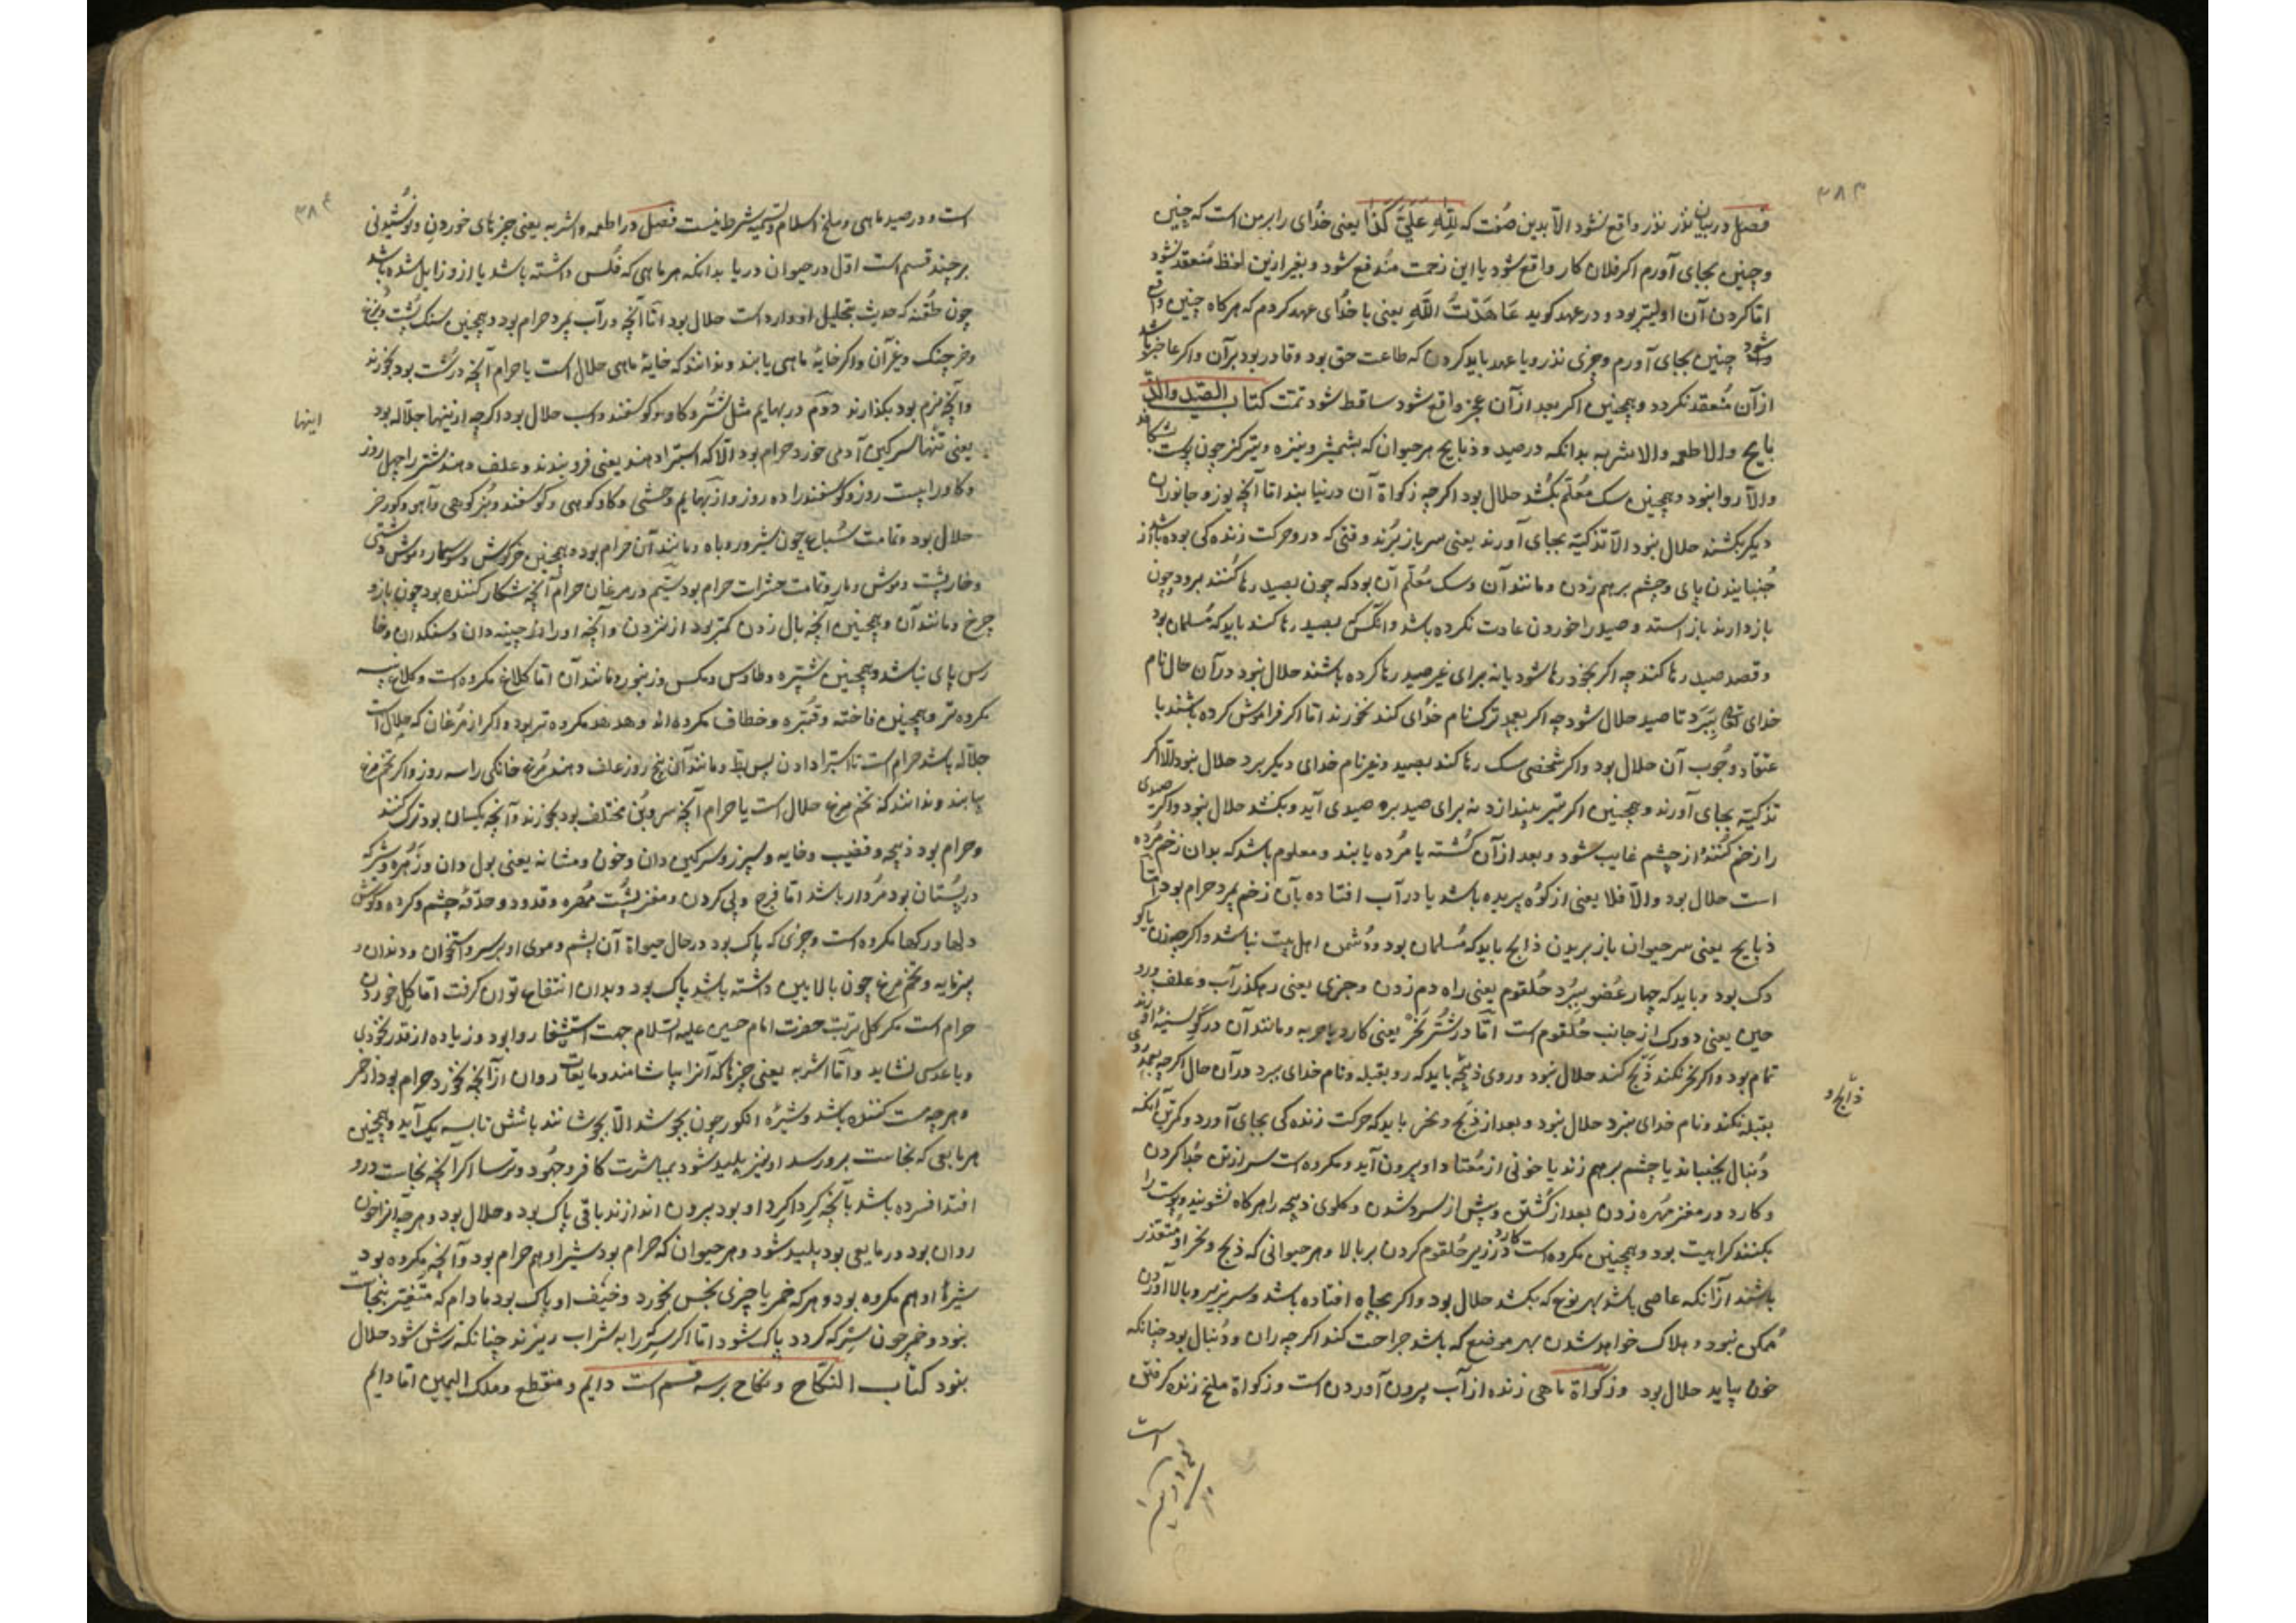 ۳۸۳
فصل در بیان نذر نذر واقع نشود الّا بدین صفت که لِلّٰهِ عَلَیَّ کَذا یعنی خدُای را بر من است که چنین
و چنین بجای آورم اکر فلان کار واقع شود یا این زحمت مندفع شود و بغیر ازین لفظ مُنعقد نشود
امّا کردن آن اولیتر بود و در عهد کوید عَاهَدْتُ اللّٰهَ یعنی با خدُای عهد کردم که هر کاه چنین واقع
شود چنین بجای آورم و چیزی نذر و یا عهد باید کردن که طاعت حق بود و قادر بود بر آن و اکر عاجز باشد
از آن مُنعقد نکردد و همچنین اکر بعد از آن عجز واقع شود ساقط شود تمّت کتاب الصّید والذّ
بایح والاطعمه والاشربه بدانکه در صید و ذبایح هر حیوان که بشمشیر و نیزه و تیر کز چون پوست بشکافد
والّا روا نبود و همچنین سک مُعلّم بکُشد حلال بود اکرچه زکواة آن درنیابند امّا آنچه یوز و جانوران
دیکر بکشند حلال نبود الّا تذکیّه بجای آورند یعنی سر باز بُرند وقتی که درو حرکت زنده کی بوده باشد از
جُنبانیدن پای و چشم برهم زدن و مانند آن و سک مُعلّم آن بود که چون بصید رها کُنند برود چون
باز دارند باز استد و صید را خوردن عادت نکرده باشد و آنکس که بصید رها کند باید که مُسلمان بود
و قصد صید رها کند چه اکر بخود رها شود یا نه برای غیر صید رها کرده باشند حلال نبود در آن حال نام
خدای تعٰ بِبَرَد تا صید حلال شود چه اکر بعمد ترک نام خدُای کند نخورند امّا اکر فراموش کرده باشند با
عتقاد وجُوب آن حلال بود و اکر شخصی سک رها کند بصید و غیر نام خدای دیکر برد حلال نبود الّا اکر
تذکیّه بجای آورند و همچنین اکر تیر بیندازد نه برای صید بره صیدی آید و بکشد حلال نبود و اکر صیدی
را زخم کُنند از چشم غایب شود و بعد از آن کُشته یا مُرده یابند و معلوم باشد که بدان زخم مُرده
است حلال بود والّا فلا یعنی از کوُه پریده باشد یا در آب افتاده بآن زخم بمرد حرام بود امّا
ذبایح یعنی سر حیوان باز بریدن ذابح باید که مُسلمان بود و دشمن اهل بیت نباشد و اکرچه زن یا کو
دک بود و باید که چهار عُضو ببُرد حُلقوم یعنی راه دم زدن و چیزی یعنی رهکذر آب و علف و ورد
حین یعنی دو رک از جانب حُلقوم است امّا در شُتُر نَحْر یعنی کارد یا حربه و مانند آن در کَو سینهٔ او زند
تمام بود و اکر نحر نکند ذَبح کند حلال نبود و روی ذبیحه باید که رو بقبله و نام خدای ببرد در آن حال اکرچه بعمد روی
ذابح و
بقبله نکند و نام خدای نبرد حلال نبود و بعد از ذَبح و نحر باید که حرکت زنده کی بجای آورد و کمترین آنکه
دُنبال بجنباند یا چشم برهم زند یا خونی از مُعتاد او بیرون آید و مکروه است سر از تن جُدا کردن
و کارد در مغز مُهره زدن بعد از کُشتن و پیش از سرد شدن و کلوی ذبیحه را هر کاه نشویند و پوست را
بکنند کراهیت بود و همچنین مکروه است کارد در زیر حُلقوم کردن بر بالا و هر حیوانی که ذبح و نحر او مُتعذّر
باشند از آنکه عاصی باشد بهر نوع که بکشد حلال بود و اکر بچاه افتاده باشد و سر بزیر و بالا آوردن
مُمکن نبود و هلاک خواهد شدن بهر موضع که باشد جراحت کند اکرچه ران و دُنبال بود چنانکه
خون بیاید حلال بود وزکواة ماهی زنده از آب بیرون آوردن است وزکواة ملخ زنده کرفتن
است
۳۸۴
است و در صید ماهی و ملخ اسلام و تسمیه شرط نیست فصل در اطعمه و اشربه یعنی چیزهای خوردن و نوشیدنی
بر چند قسم است اوّل در حیوان دریا بدانکه هر ماهی که فَلس داشته باشد یا ازو زایل شده باشد
چون که حدیث بتحلیل او وارد است حلال بود امّا آنچه در آب بمرد حرام بود و همچنین سنک پُشت و
و خرچنک و غیر آن و اکر خایهٔ ماهی یابند و ندانند که خایهٔ ماهی حلال است یا حرام آنچه درشت بود بخورند
و آنچه نرم بود بکذارند دوّم در بهایم مثل شُتُر و کاو و کوسفند و اسب حلال بود اکرچه ازینها جلّاله بود
اینها
یعنی تنها سرکین آدمی خورد حرام بود الّا که استبرا دهند یعنی فرو بندند و علف دهند شتر را چهل روز
و کاو را بیست روز و کوسفند را ده روز و از بهایم وحشی و کاو کوهی و کوسفند و بُز کوهی و آهو و کورخر
حلال بود و تمامت سُباع چون شیر و روباه و مانند آن حرام بود و همچنین خرکوش و سوسمار و موش دشتی
و خارپشت و موش و مار و تمامت حشرات حرام بود سیّم در مرغان حرام آنچه شکار کننده بود چون باز و
چرغ و مانند آن و همچنین آنچه بال زدن کمتر بود از نزدن و آنچه او را نه چینه دان و سنکدان و خا
رس پای نباشد و همچنین شبپره و طاوس و مکس و زنبور و مانند آن امّا کلاغ مکروه است و کلاغ سیه
مکروه تر و همچنین فاخته و قنبره و خطّاف مکروه اند و هدهد مکروه تر بود و اکر از مُرغان که حلال است
جلّاله باشد حرام است تا استبرا دادن پس بط و مانند آن پنج روز علف دهند مُرغ خانکی را سه روز و اکر تخم مرغ
بیابند و ندانند که تخم مرغ حلال است یا حرام آنچه سر و بُن مختلف بود بخورند و آنچه یکسان بود ترک کنند
و حرام بود ذبیحه و قضیب و خایه و سپرز و سرکین دان و خون و مشانه یعنی بول دان و زَهره و شیر که
در پستان بود مُردار باشد امّا فرج و پی کردن و مغز پشت مُهره و غدود و حدقهٔ چشم و کرده و کوش
دلها و رکها مکروه است و چیزی که پاک بود در حال حیواة آن پشم و موی او بر سر و استخوان و دندان و
پنیرمایه و تخم مرغ چون بالایین داشته باشد پاک بود و بدان انتفاع توان کرفت امّا کِل خوردن
حرام است مکر کِل تربت حضرت امام حسین علیه السّلام جهت استشفا روا بود و زیاده از قدر نخودی
و یا عدسی نشاید و امّا اشربه یعنی چیزها که آنرا بیاشامند و مایعات روان از آنچه نخورد حرام بود از خمر
و هر چه مست کننده باشد و شیرهٔ انکور چون بجوشد الّا بجوشانند باتش تا بسه یک آید و همچنین
هر مایعی که نجاست برو رسد او نیز پلید شود بمباشرت کافر و جهُود و ترسا اکر آنچه نجاست درو
افتد افسرده باشد با آنچه کِرداکِرد او بود بیرون اندازند باقی پاک بود و حلال بود و هر چه آنرا خون
روان بود در مایعی بود پلید شود و هر حیوان که حرام بود شیر او هم حرام بود و آنچه مکروه بود
شیر او هم مکروه بود و هر که خمر یا چیزی نجس بخورد و او پاک بود مادام که متغیّر بنجاست
نبود و خمر چون سرکه کردد پاک شود امّا اکر سرکه را به شراب ریزند چنانکه ترش شود حلال
نبود کتاب النّکاح و نکاح بر سه قسم است دایم و منقطع و ملک الیمین امّا دایم